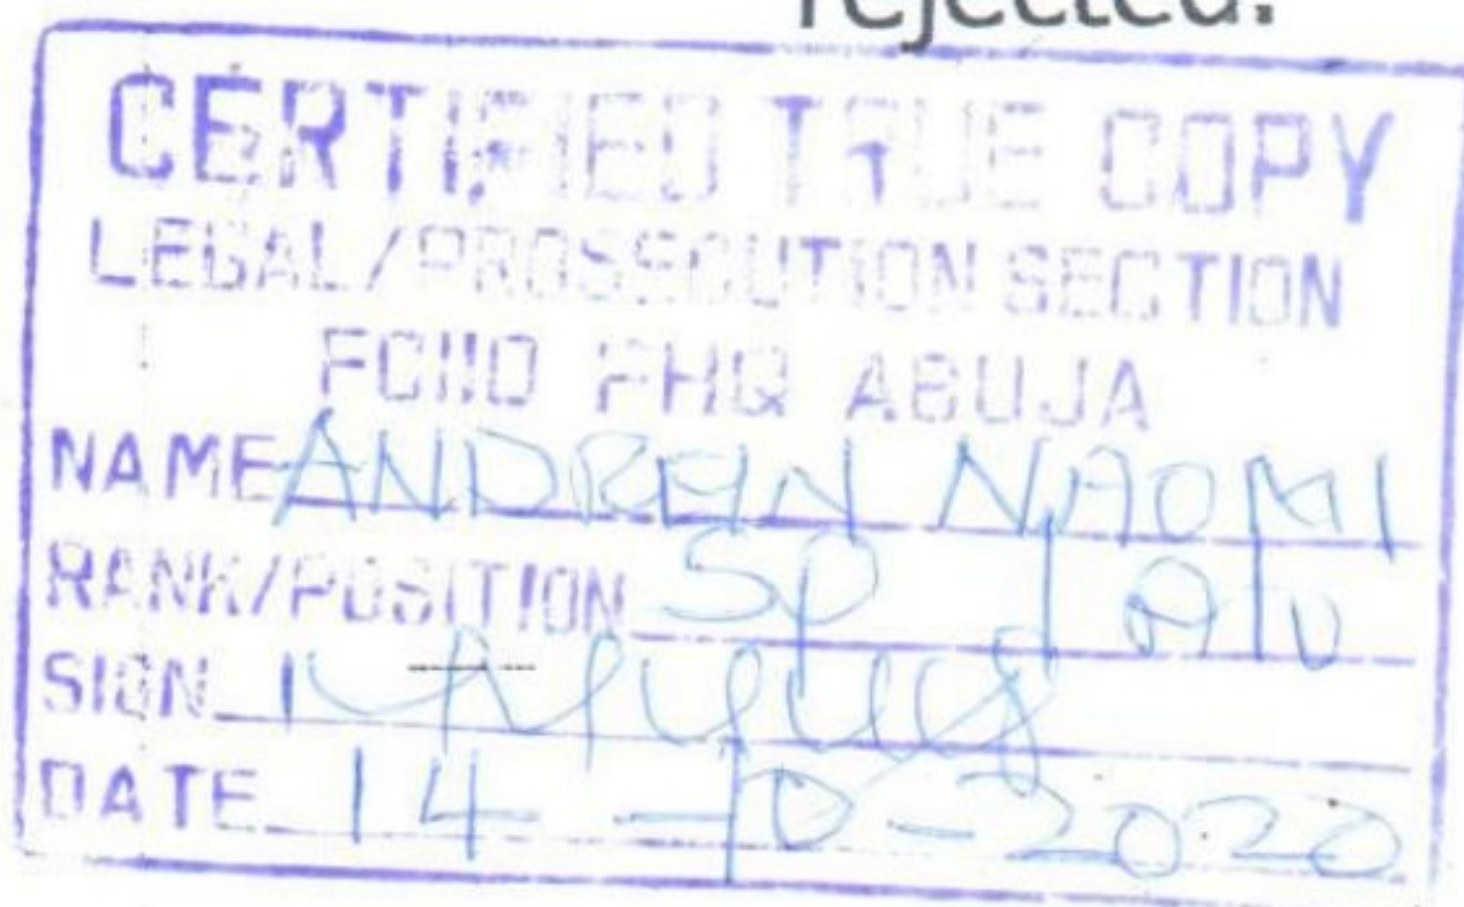 rejected.
CERTIFIED TRUE COPY
LEGAL/PROSSCUTION SECTION
FCIID FHQ ABUJA
NAME ANDREW NAOMI
RANK/POSITION SP
SIGN
DATE 14-10-2020